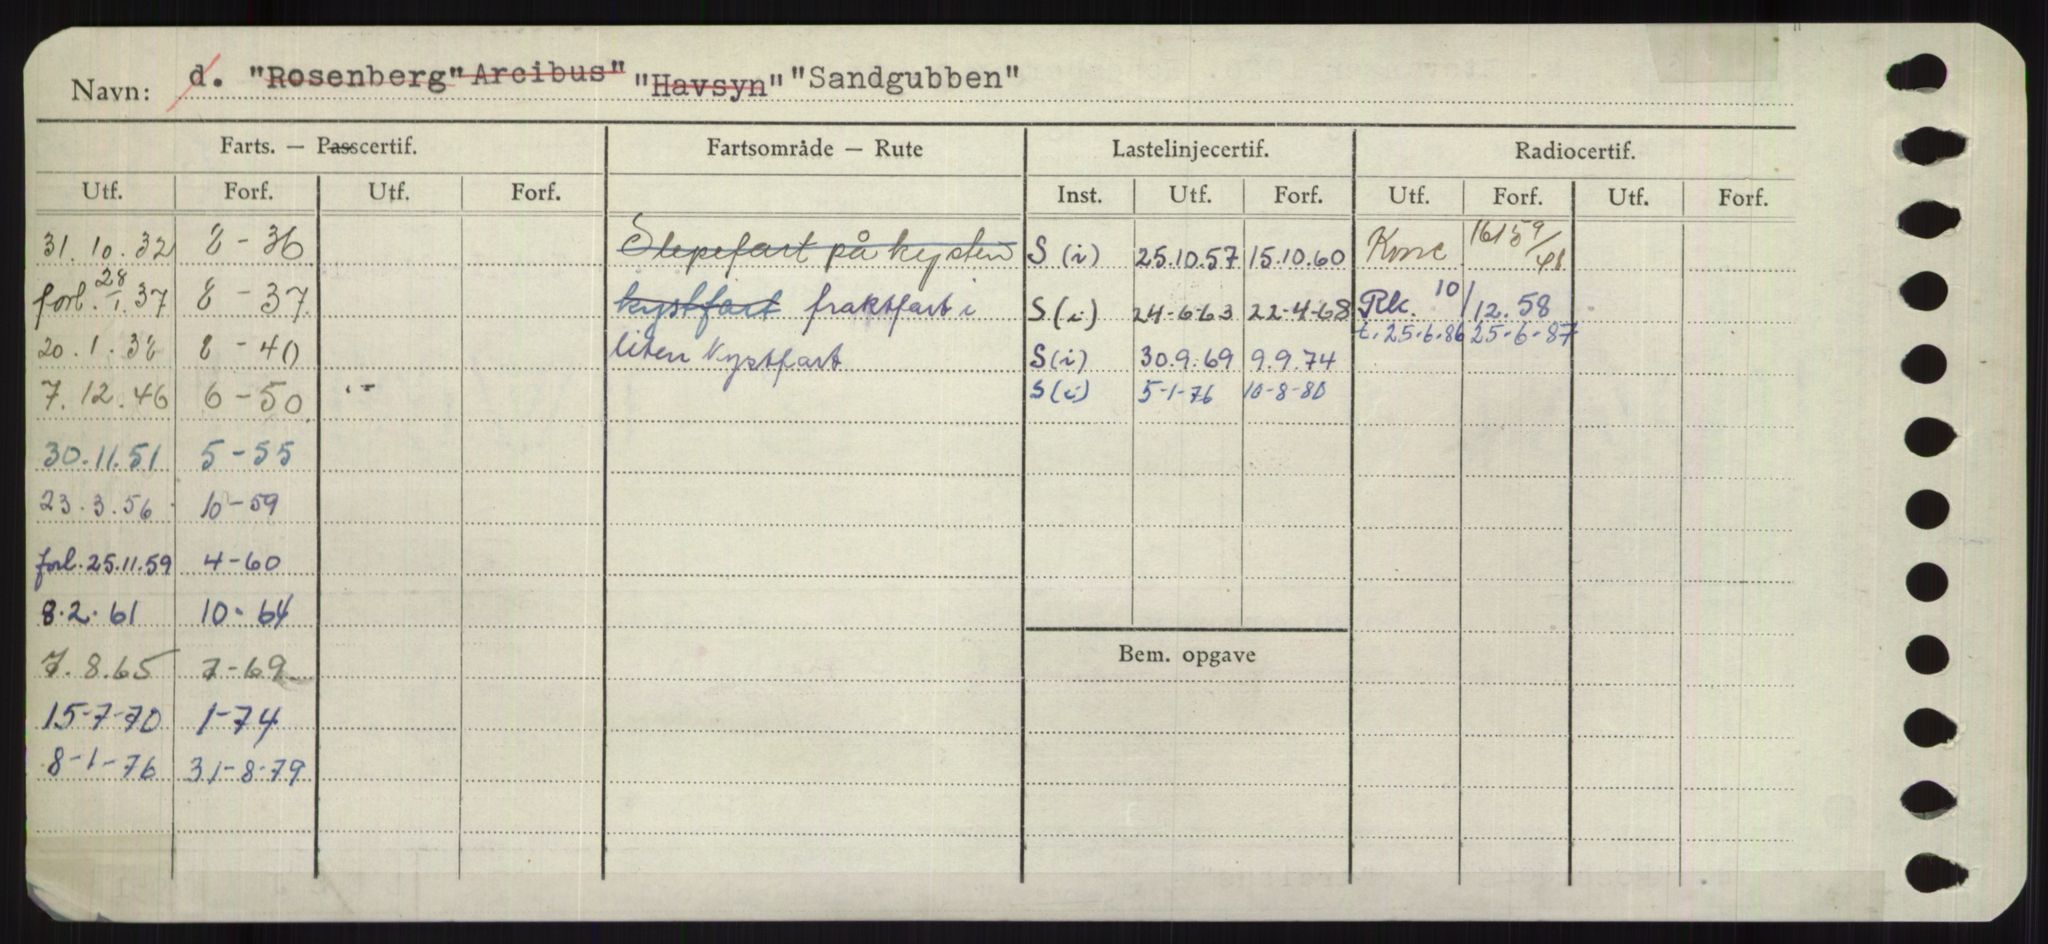 Navn: d. "Rosenberg" Arcibus" "Havsyn" "Sandgubben"
Farts. — Passcertif. Fartsområde — Rute Lastelinjecertif. Radiocertif.
Utf. Forf. Utf. Forf. Inst. Utf. Forf. Utf. Forf. Utf. Forf.
31.10.32 8-36 Slepefart på kysten S(i) 25.10.57 15.10.60
forl. 28/1.37 8-37 kystfart fraktfart i S(i) 24-6-63 22-4-68 Rk. 10/12.58
t. 25.6.86 25-6-87
20.1.38 8-40 liten kystfart S(i) 30.9.69 9.9.74
7.12.46 6-50 S(i) 5-1-76 10-8-80
30.11.51 5-55
23.3.56 10-59
forl. 25.11.59 4-60
8.2.61 10.64
7.8.65 7-69
15-7-70 1-74
8-1-76 31-8-79
Bem. opgave